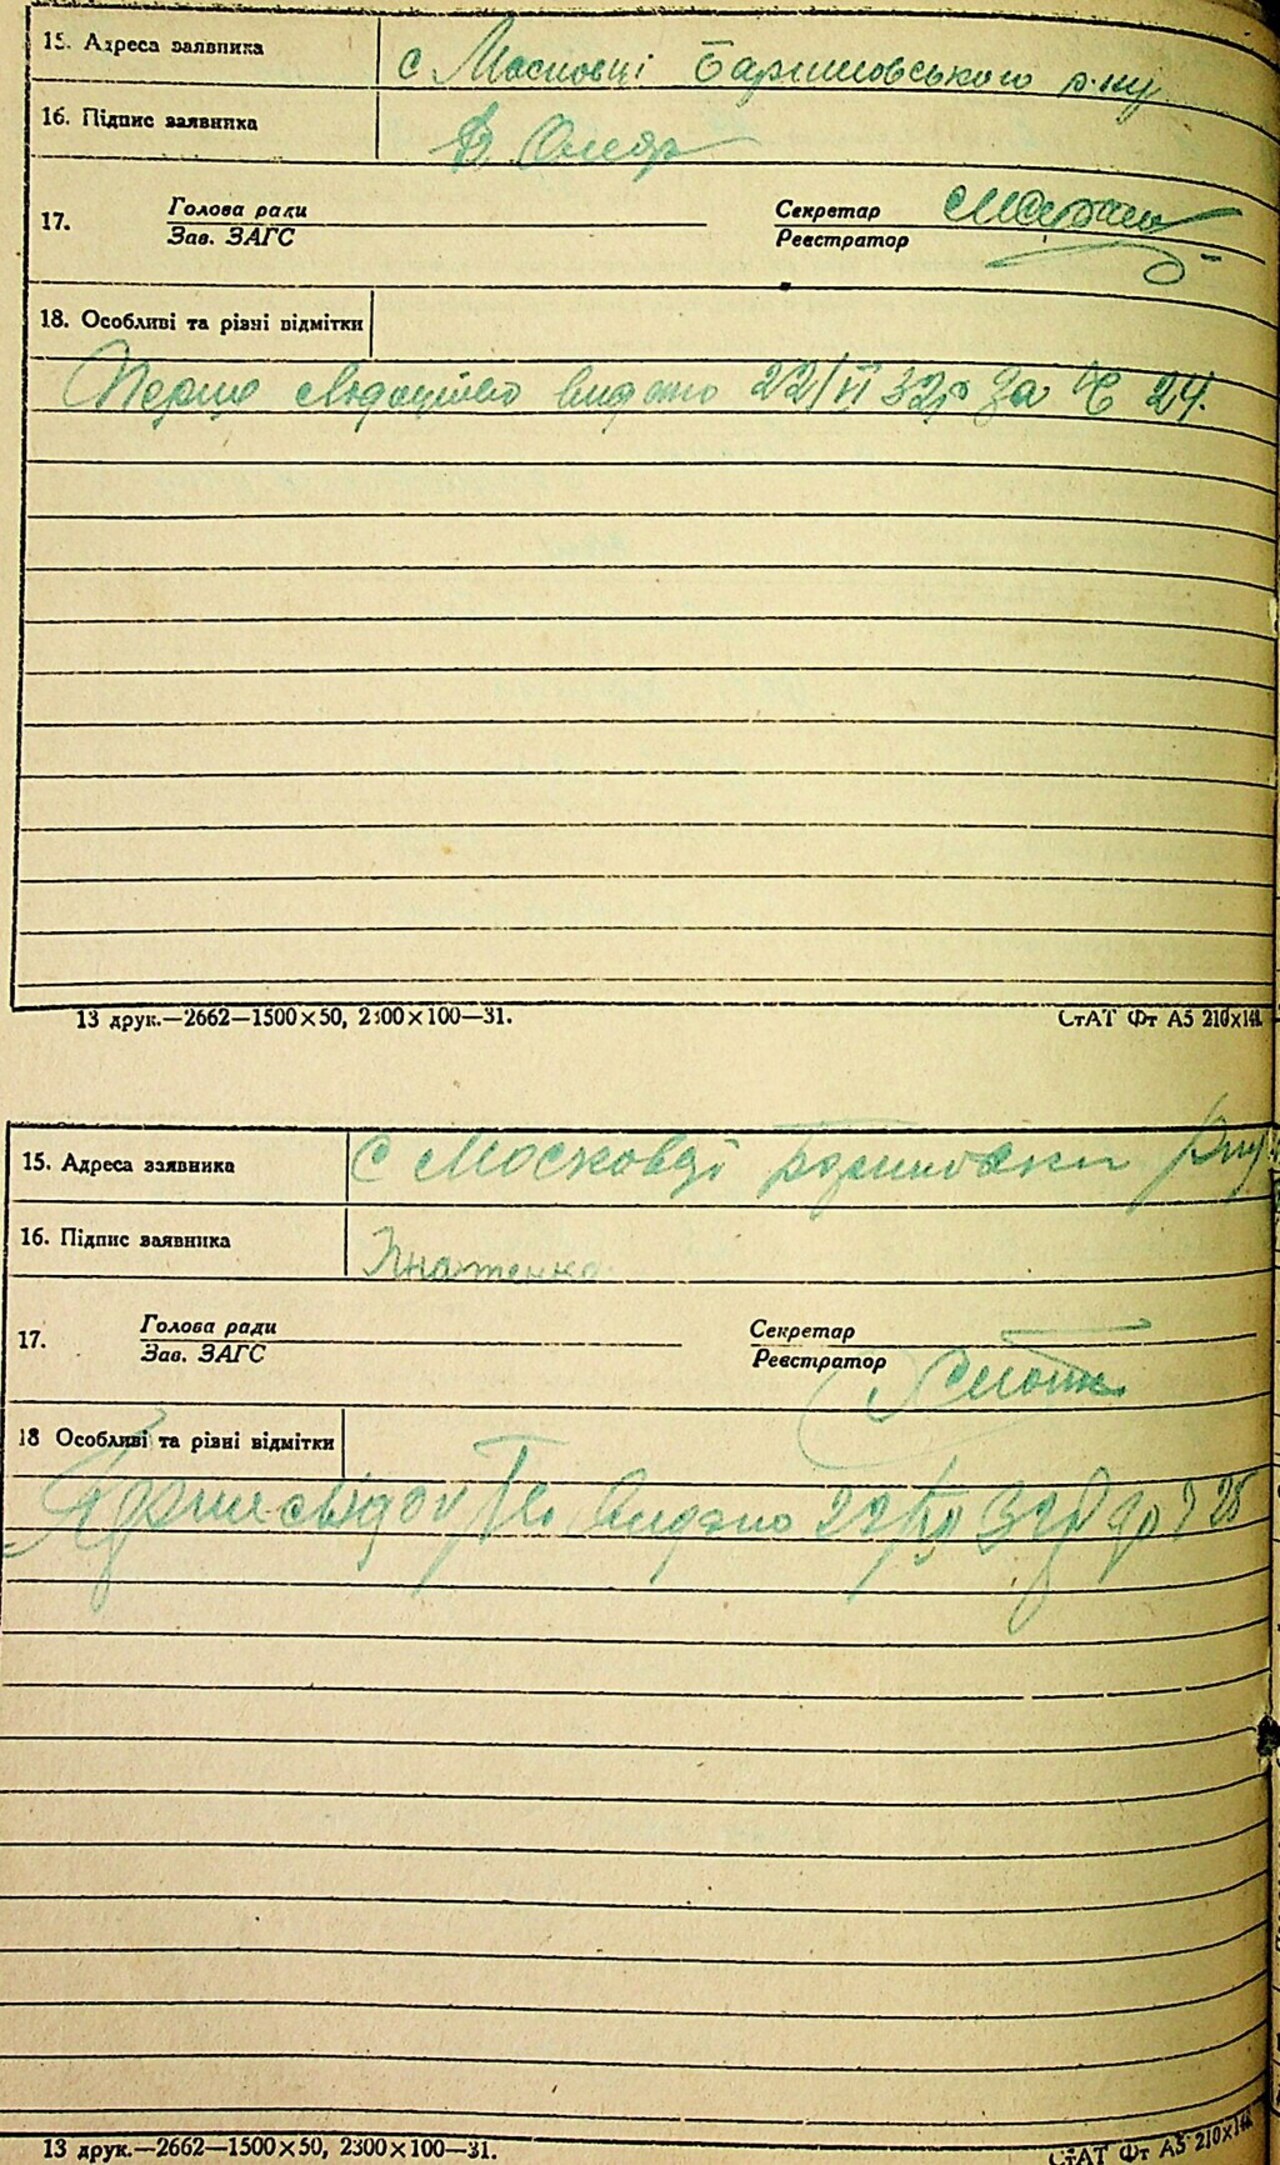 15. Адреса заявника
с Масковці Баришовського р-ну
16. Підпис заявника
17. Голова ради
Зав. ЗАГС
Секретар
Реєстратор
18. Особливі та різні відмітки
Перше свідоцтво видано 22/VI 32р за № 24.
13 друк.—2662—1500×50, 2300×100—31.
СтАТ Фт А5 210×148.
15. Адреса заявника
с Московці рну
16. Підпис заявника
Гнатенко
17. Голова ради
Зав. ЗАГС
Секретар
Реєстратор
18 Особливі та різні відмітки
видано
13 друк.—2662—1500×50, 2300×100—31.
СтАТ Фт А5 210×148